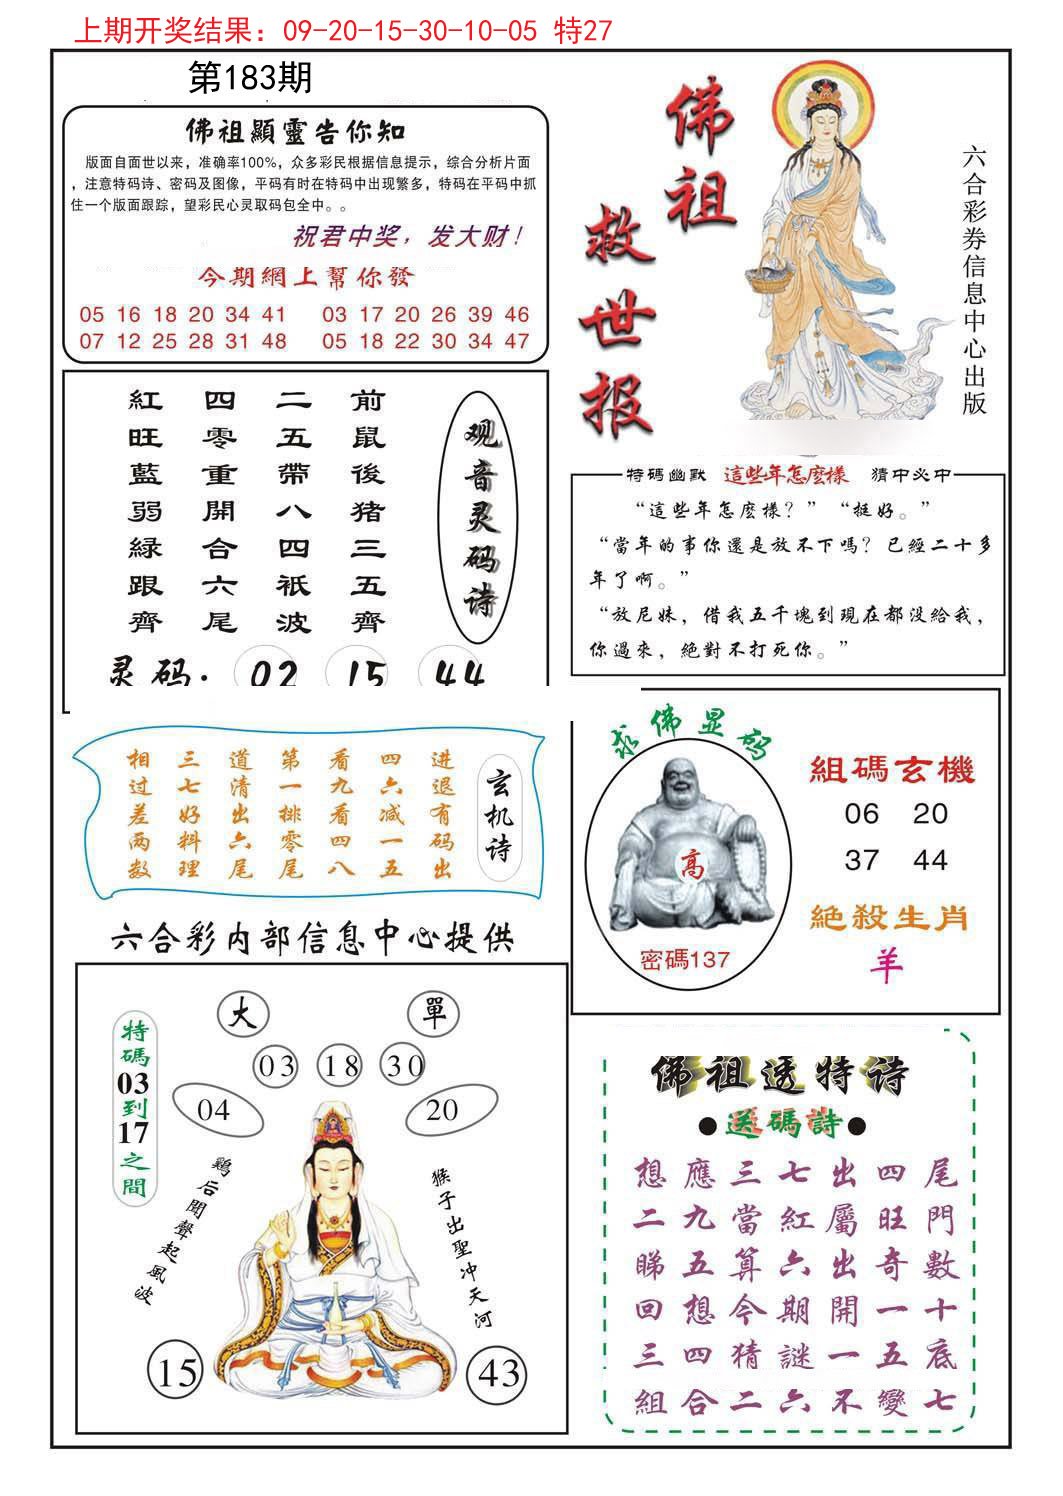 上期开奖结果：09-20-15-30-10-05 特27
第183期
佛祖顯靈告你知
版面自面世以来，准确率100%，众多彩民根据信息提示，综合分析片面
，注意特码诗、密码及图像，平码有时在特码中出现繁多，特码在平码中抓
住一个版面跟踪，望彩民心灵取码包全中。。
祝君中奖，发大财！
今期網上幫你發
05 16 18 20 34 41 03 17 20 26 39 46
07 12 25 28 31 48 05 18 22 30 34 47
佛祖
救世报
六合彩券信息中心出版
观音灵码诗
前鼠後猪三五齊
二五帶八四衹波
四零重開合六尾
紅旺藍弱緑跟齊
灵码: 02 15 44
特碼幽默 這些年怎麽樣 猜中必中
“這些年怎麽樣？”“挺好。”
“當年的事你還是放不下嗎？已經二十多
年了啊。”
“放尼妹，借我五千塊到現在都没給我，
你過來，絕對不打死你。”
玄机诗
进退有码出
四六减一五
看九看四八
第一排零尾
道清出六尾
三七好料理
相过差两数
求佛显码
高
密碼137
組碼玄機
06 20
37 44
絕殺生肖
羊
六合彩内部信息中心提供
特碼03到17之間
大
單
03 18 30
04
20
鷄后聞聲起風波
猴子出聖冲天河
15
43
佛祖透特诗
●送碼詩●
想應三七出四尾
二九當紅屬旺門
睇五算六出奇數
回想今期開一十
三四猜謎一五底
組合二六不變七